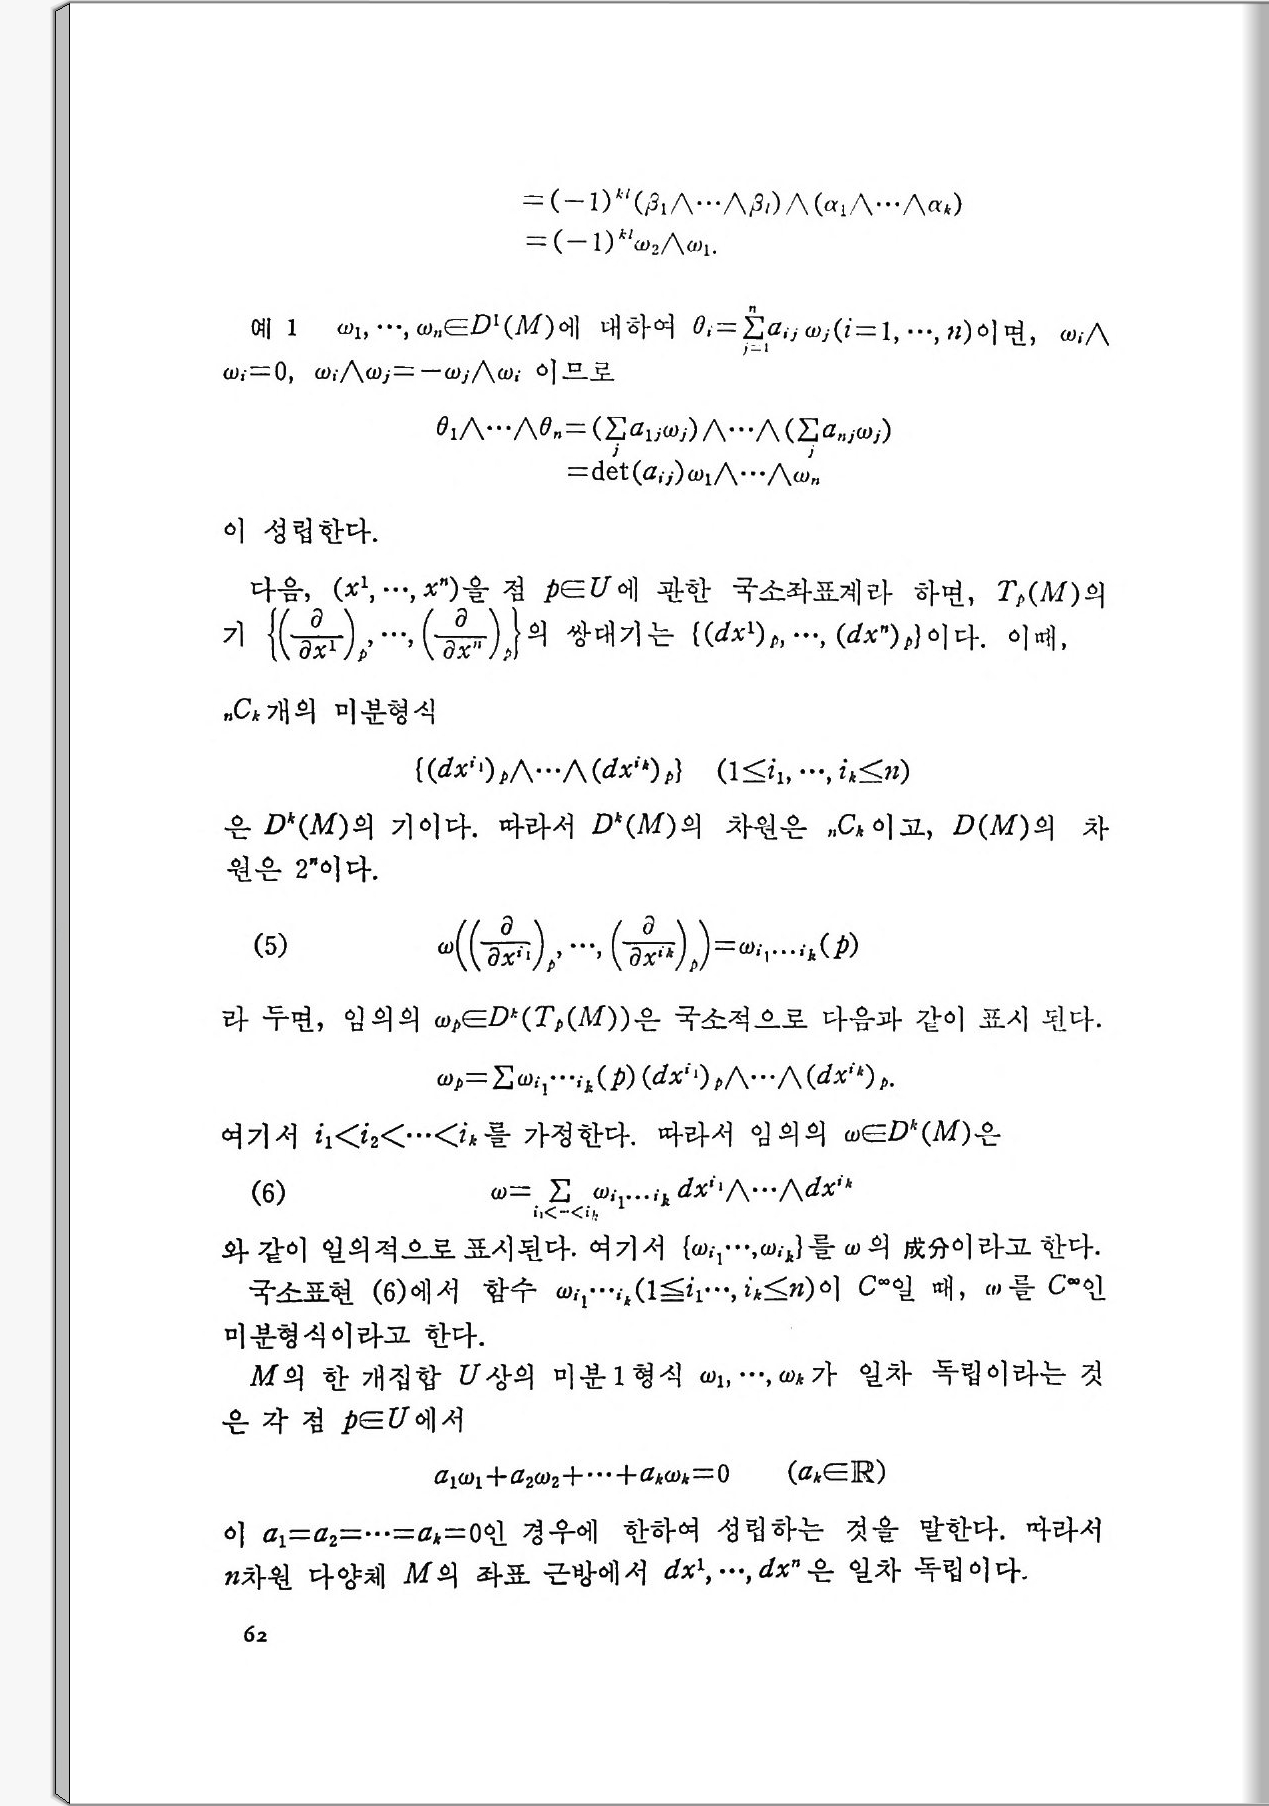 =(−1)^{kl}(β₁∧⋯∧β_l)∧(α₁∧⋯∧α_k)
=(−1)^{kl}ω₂∧ω₁.
예 1 ω₁, ⋯, ω_n∈D¹(M)에 대하여 θ_i=\sum_{j=1}^{n}a_{ij}ω_j(i=1, ⋯, n)이면, ω_i∧
ω_i=0, ω_i∧ω_j=−ω_j∧ω_i 이므로
θ₁∧⋯∧θ_n=(\sum_j a_{1j}ω_j)∧⋯∧(\sum_j a_{nj}ω_j)
=det(a_{ij})ω₁∧⋯∧ω_n
이 성립한다.
다음, (x¹, ⋯, xⁿ)을 점 p∈U에 관한 국소좌표계라 하면, T_p(M)의
기 {(∂/∂x¹)_p, ⋯, (∂/∂xⁿ)_p}의 쌍대기는 {(dx¹)_p, ⋯, (dxⁿ)_p}이다. 이때,
_nC_k개의 미분형식
{(dx^{i_1})_p∧⋯∧(dx^{i_k})_p} (1≤i₁, ⋯, i_k≤n)
은 D^k(M)의 기이다. 따라서 D^k(M)의 차원은 _nC_k이고, D(M)의 차
원은 2ⁿ이다.
(5) ω((∂/∂x^{i_1})_p, ⋯, (∂/∂x^{i_k})_p)=ω_{i_1⋯i_k}(p)
라 두면, 임의의 ω_p∈D^k(T_p(M))은 국소적으로 다음과 같이 표시 된다.
ω_p=∑ω_{i_1⋯i_k}(p)(dx^{i_1})_p∧⋯∧(dx^{i_k})_p.
여기서 i₁<i₂<⋯<i_k를 가정한다. 따라서 임의의 ω∈D^k(M)은
(6) ω=\sum_{i_1<⋯<i_k} ω_{i_1⋯i_k} dx^{i_1}∧⋯∧dx^{i_k}
와 같이 일의적으로 표시된다. 여기서 {ω_{i_1}⋯,ω_{i_k}}를 ω의 成分이라고 한다.
국소표현 (6)에서 함수 ω_{i_1}⋯_{i_k}(1≦i₁⋯, i_k≤n)이 C^∞일 때, ω를 C^∞인
미분형식이라고 한다.
M의 한 개집합 U상의 미분1형식 ω₁, ⋯, ω_k가 일차 독립이라는 것
은 각 점 p∈U에서
a₁ω₁+a₂ω₂+⋯+a_kω_k=0 (a_k∈ℝ)
이 a₁=a₂=⋯=a_k=0인 경우에 한하여 성립하는 것을 말한다. 따라서
n차원 다양체 M의 좌표 근방에서 dx¹, ⋯, dxⁿ은 일차 독립이다.
62